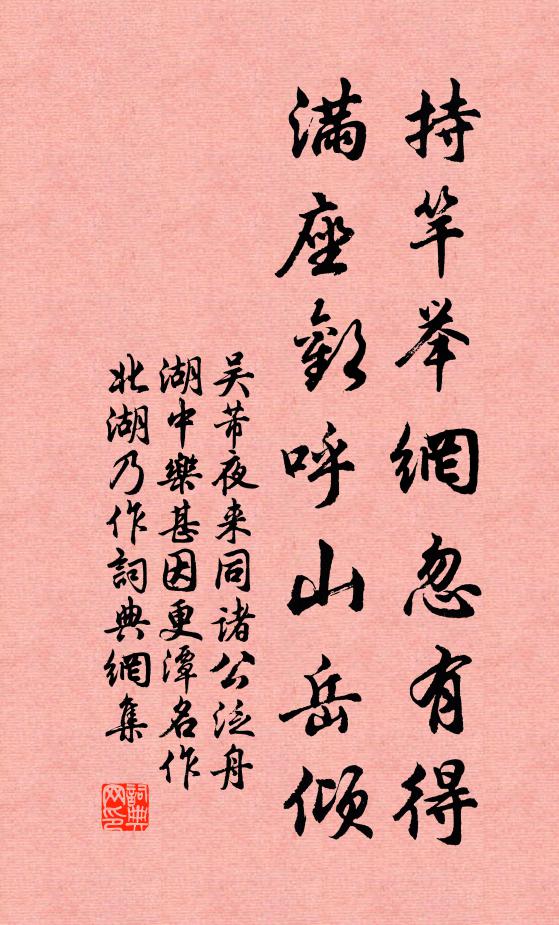 持竿举網忽有得
滿座歡呼山岳傾
吴芾夜来同諸公泛舟
湖中樂甚因更潭名作
北湖乃作詞典網集
詞典
网印